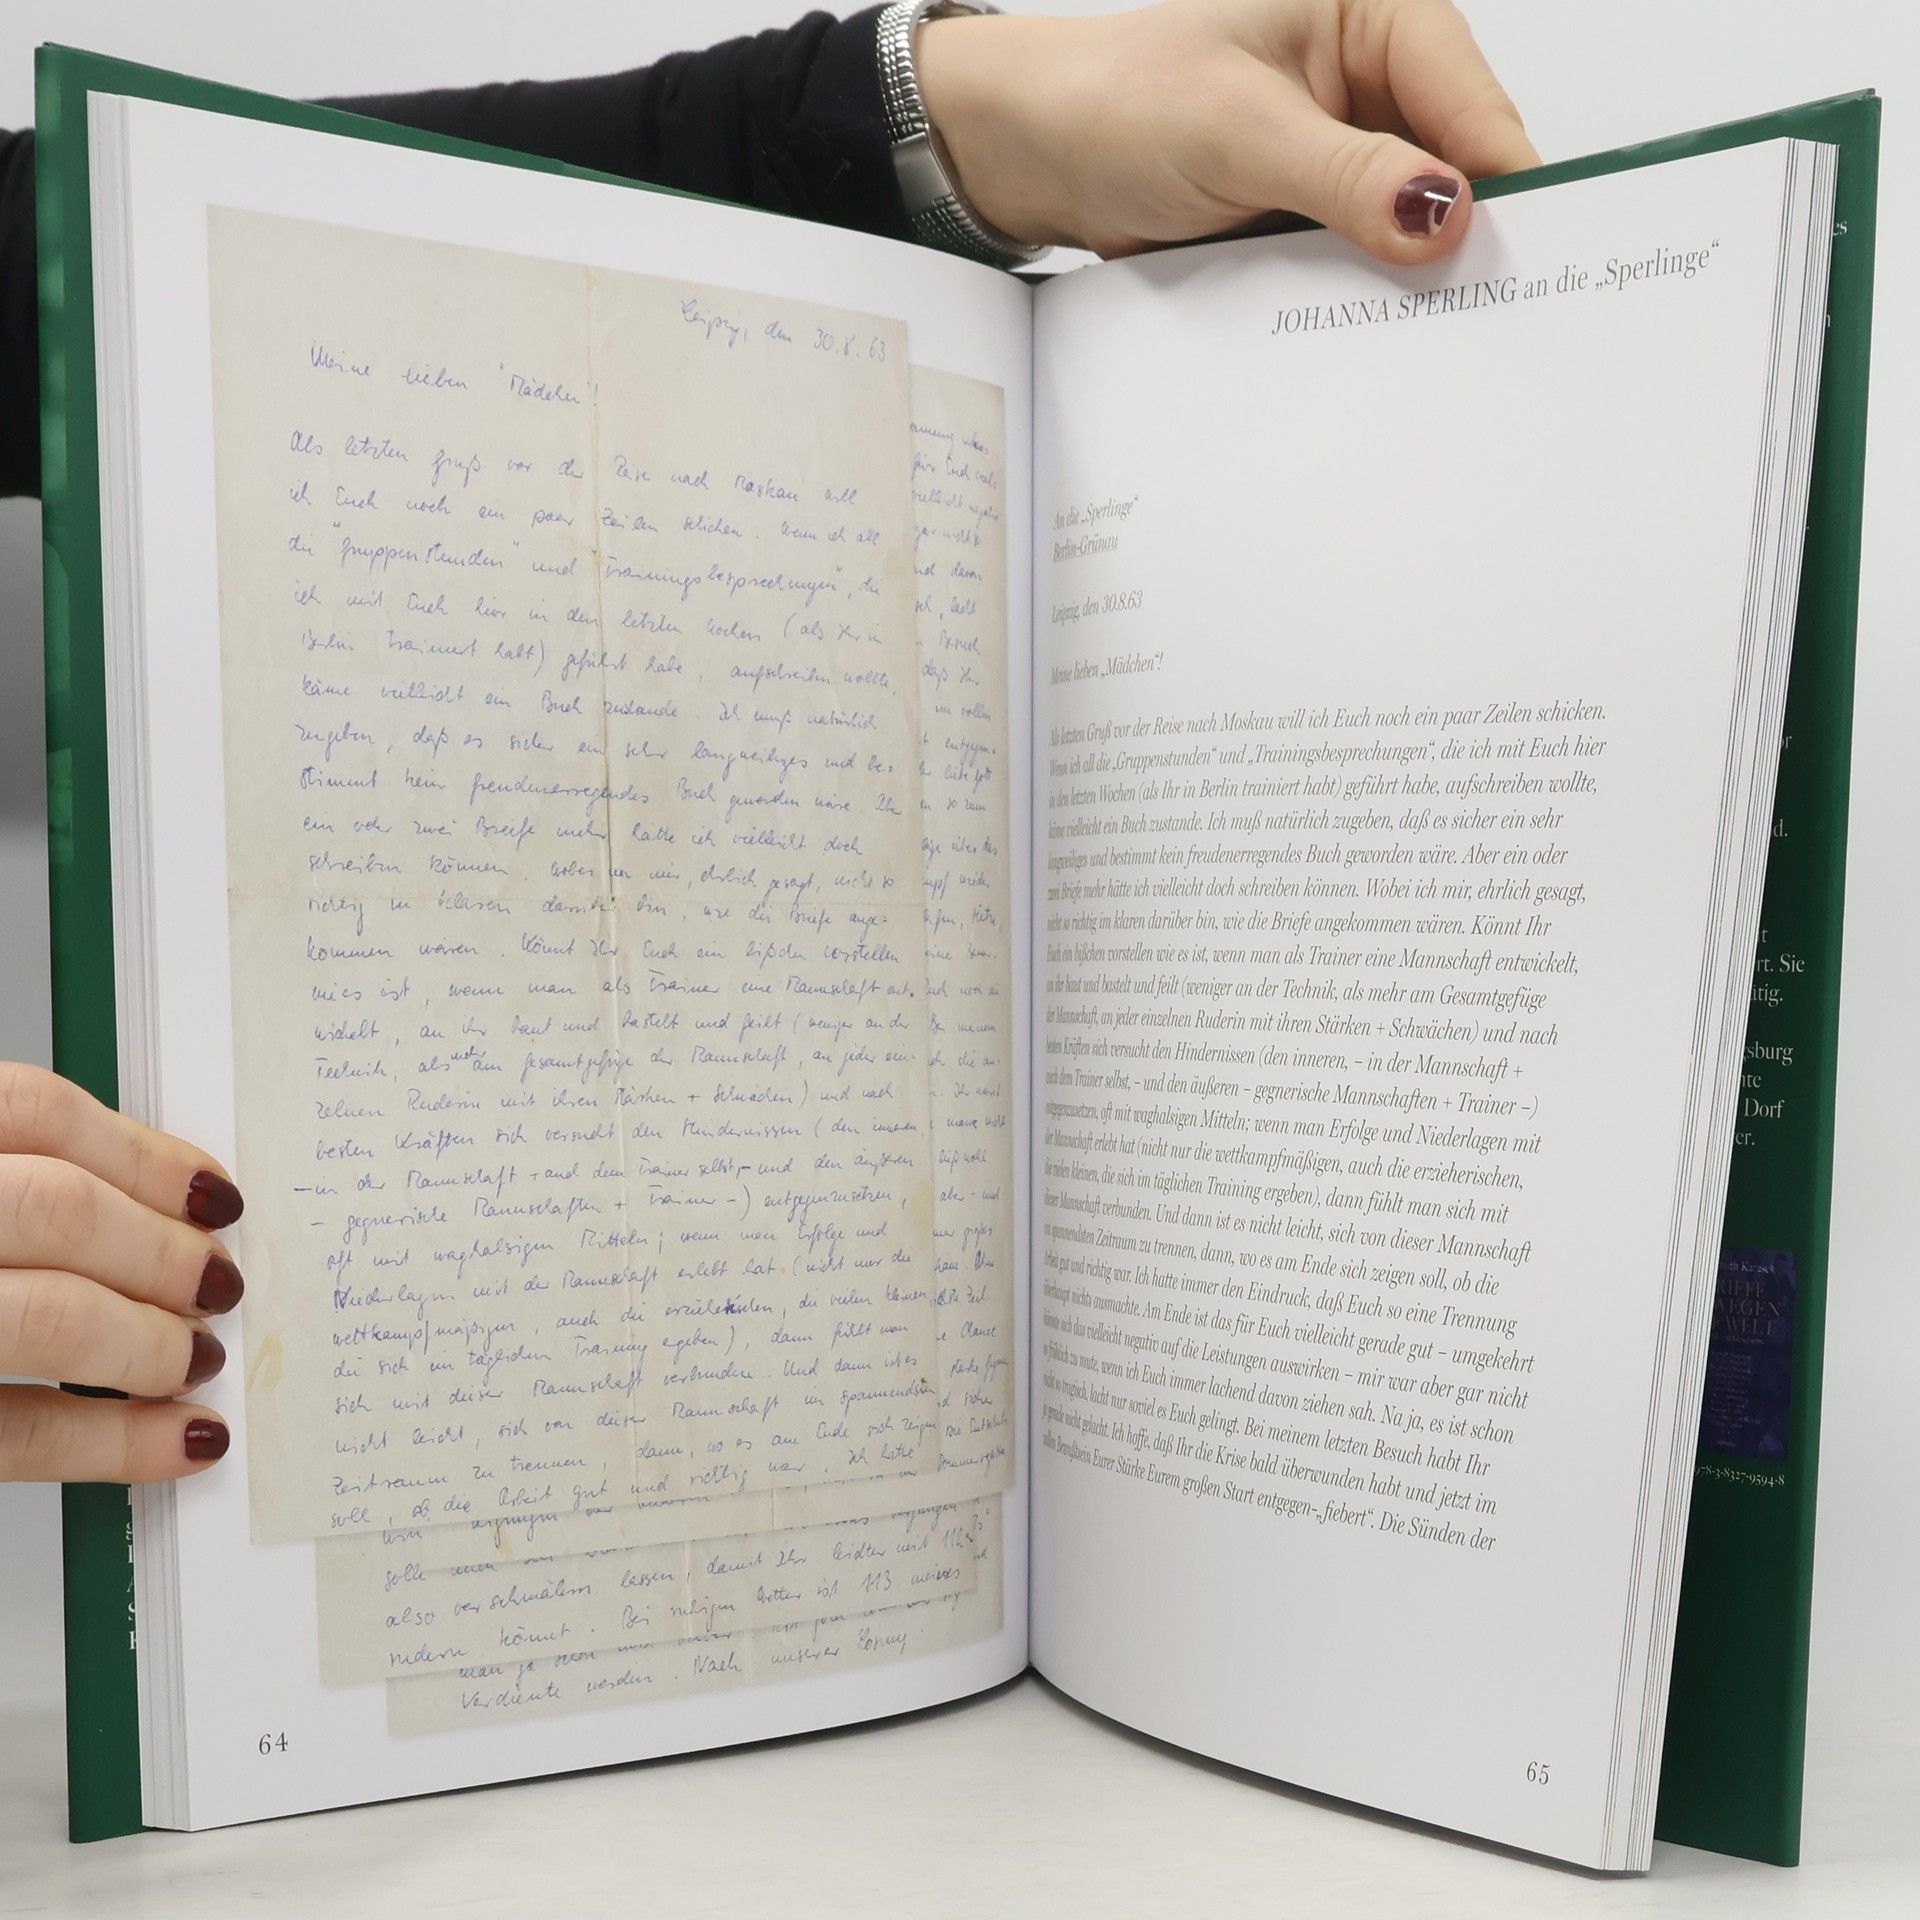 Leipzig, den 30.8.63
Meine lieben "Mädchen"!
Als letzten Gruß vor der Reise nach Moskau will
ich Euch noch ein paar Zeilen schicken. Wenn ich all
die "Gruppenstunden" und "Trainingsbesprechungen", die
ich mit Euch hier in den letzten Wochen (als Ihr in
Berlin trainiert habt) geführt habe, aufschreiben wollte,
käme vielleicht ein Buch zustande. Ich muß natürlich
zugeben, daß es sicher ein sehr langweiliges und be=
stimmt kein freudenerregendes Buch geworden wäre. Aber
ein oder zwei Briefe mehr hätte ich vielleicht doch
schreiben können. Wobei mir, ehrlich gesagt, nicht so
richtig im klaren darüber bin, wie die Briefe ange=
kommen wären. Könnt Ihr Euch ein bißchen vorstellen
wie es ist, wenn man als Trainer eine Mannschaft ent-
wickelt, an ihr baut und bastelt und feilt (weniger an der
Technik, als mehr am Gesamtgefüge der Mannschaft, an jeder ein-
zelnen Ruderin mit ihren Stärken + Schwächen) und nach
besten Kräften sich versucht den Hindernissen (den inneren,
– in der Mannschaft + auch dem Trainer selbst, – und den äußeren
– gegnerische Mannschaften + Trainer –) entgegenzusetzen,
oft mit waghalsigen Mitteln; wenn man Erfolge und
Niederlagen mit der Mannschaft erlebt hat (nicht nur die
wettkampfmäßigen, auch die erzieherischen, die vielen kleinen,
die sich im täglichen Training ergeben), dann fühlt man
sich mit dieser Mannschaft verbunden. Und dann ist es
nicht leicht, sich von dieser Mannschaft im spannendsten
Zeitraum zu trennen, dann, wo es am Ende sich zeigen
soll, ob die Arbeit gut und richtig war. Ich hatte
solle
also verschmälern lassen, damit Ihr leichter mit 112
rudern könnt. Bei ruhigem Wetter ist 113
man ja schon
Verdiente werden. Nach unserer Losung
64
JOHANNA SPERLING an die „Sperlinge“
An die „Sperlinge“
Berlin-Grünau
Leipzig, den 30.8.63
Meine lieben „Mädchen“!
Als letzten Gruß vor der Reise nach Moskau will ich Euch noch ein paar Zeilen schicken.
Wenn ich all die „Gruppenstunden“ und „Trainingsbesprechungen“, die ich mit Euch hier
in den letzten Wochen (als Ihr in Berlin trainiert habt) geführt habe, aufschreiben wollte,
käme vielleicht ein Buch zustande. Ich muß natürlich zugeben, daß es sicher ein sehr
langweiliges und bestimmt kein freudenerregendes Buch geworden wäre. Aber ein oder
zwei Briefe mehr hätte ich vielleicht doch schreiben können. Wobei ich mir, ehrlich gesagt,
nicht so richtig im klaren darüber bin, wie die Briefe angekommen wären. Könnt Ihr
Euch ein bißchen vorstellen wie es ist, wenn man als Trainer eine Mannschaft entwickelt,
an ihr baut und bastelt und feilt (weniger an der Technik, als mehr am Gesamtgefüge
der Mannschaft, an jeder einzelnen Ruderin mit ihren Stärken + Schwächen) und nach
besten Kräften sich versucht den Hindernissen (den inneren, – in der Mannschaft +
auch dem Trainer selbst, – und den äußeren – gegnerische Mannschaften + Trainer –)
entgegenzusetzen, oft mit waghalsigen Mitteln; wenn man Erfolge und Niederlagen mit
der Mannschaft erlebt hat (nicht nur die wettkampfmäßigen, auch die erzieherischen,
die vielen kleinen, die sich im täglichen Training ergeben), dann fühlt man sich mit
dieser Mannschaft verbunden. Und dann ist es nicht leicht, sich von dieser Mannschaft
im spannendsten Zeitraum zu trennen, dann, wo es am Ende sich zeigen soll, ob die
Arbeit gut und richtig war. Ich hatte immer den Eindruck, daß Euch so eine Trennung
überhaupt nichts ausmachte. Am Ende ist das für Euch vielleicht gerade gut – umgekehrt
könnte sich das vielleicht negativ auf die Leistungen auswirken – mir war aber gar nicht
so fröhlich zu mute, wenn ich Euch immer lachend davon ziehen sah. Na ja, es ist schon
nicht so tragisch, lacht nur soviel es Euch gelingt. Bei meinem letzten Besuch habt Ihr
ja gerade nicht gelacht. Ich hoffe, daß Ihr die Krise bald überwunden habt und jetzt im
vollen Bewußtsein Eurer Stärke Eurem großen Start entgegen-„fiebert“. Die Sünden der
65
rt. Sie
Dorf
978-3-8327-9594-8